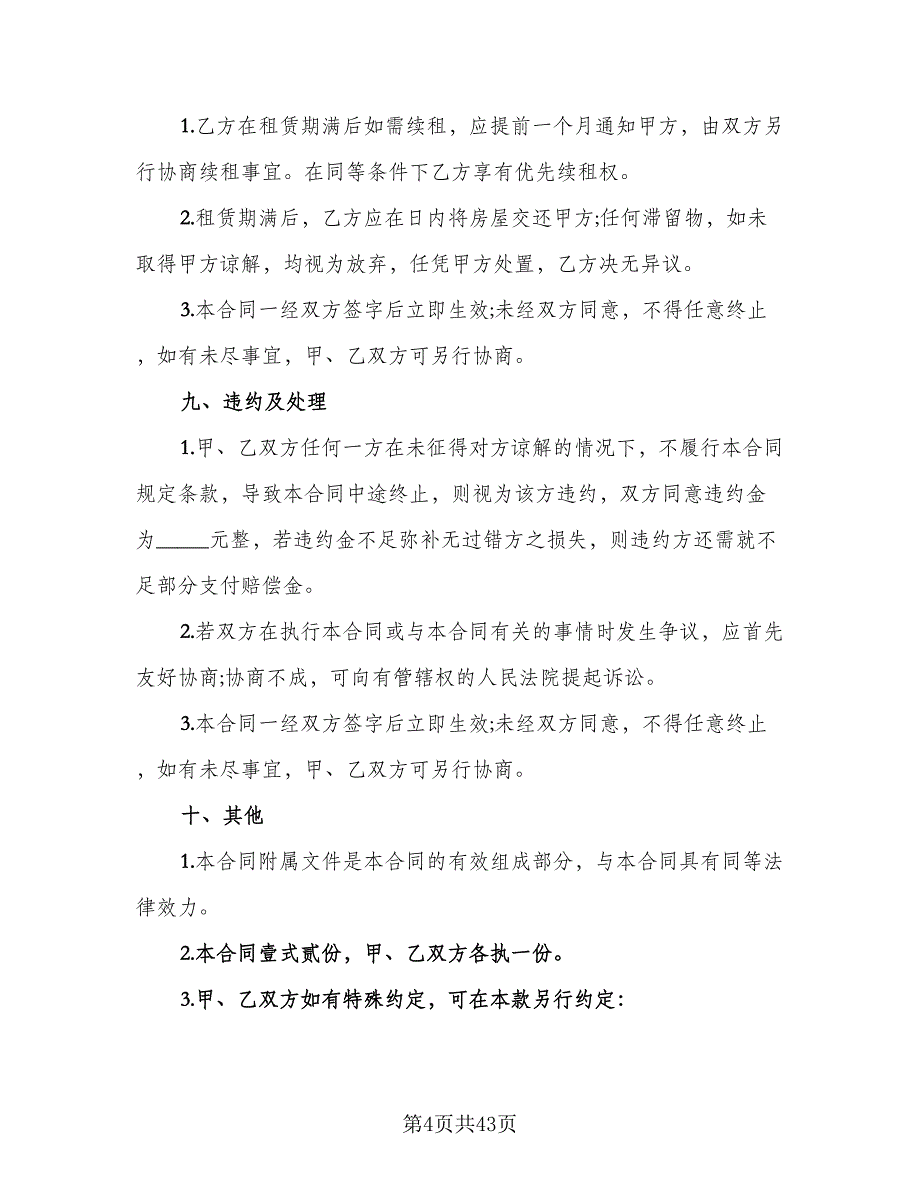 1.乙方在租赁期满后如需续租，应提前一个月通知甲方，由双方另
行协商续租事宜。在同等条件下乙方享有优先续租权。
2.租赁期满后，乙方应在日内将房屋交还甲方;任何滞留物，如未
取得甲方谅解，均视为放弃，任凭甲方处置，乙方决无异议。
3.本合同一经双方签字后立即生效;未经双方同意，不得任意终止
，如有未尽事宜，甲、乙双方可另行协商。
九、违约及处理
1.甲、乙双方任何一方在未征得对方谅解的情况下，不履行本合同
规定条款，导致本合同中途终止，则视为该方违约，双方同意违约金
为_____元整，若违约金不足弥补无过错方之损失，则违约方还需就不
足部分支付赔偿金。
2.若双方在执行本合同或与本合同有关的事情时发生争议，应首先
友好协商;协商不成，可向有管辖权的人民法院提起诉讼。
3.本合同一经双方签字后立即生效;未经双方同意，不得任意终止
，如有未尽事宜，甲、乙双方可另行协商。
十、其他
1.本合同附属文件是本合同的有效组成部分，与本合同具有同等法
律效力。
2.本合同壹式贰份，甲、乙双方各执一份。
3.甲、乙双方如有特殊约定，可在本款另行约定：
第4页共43页